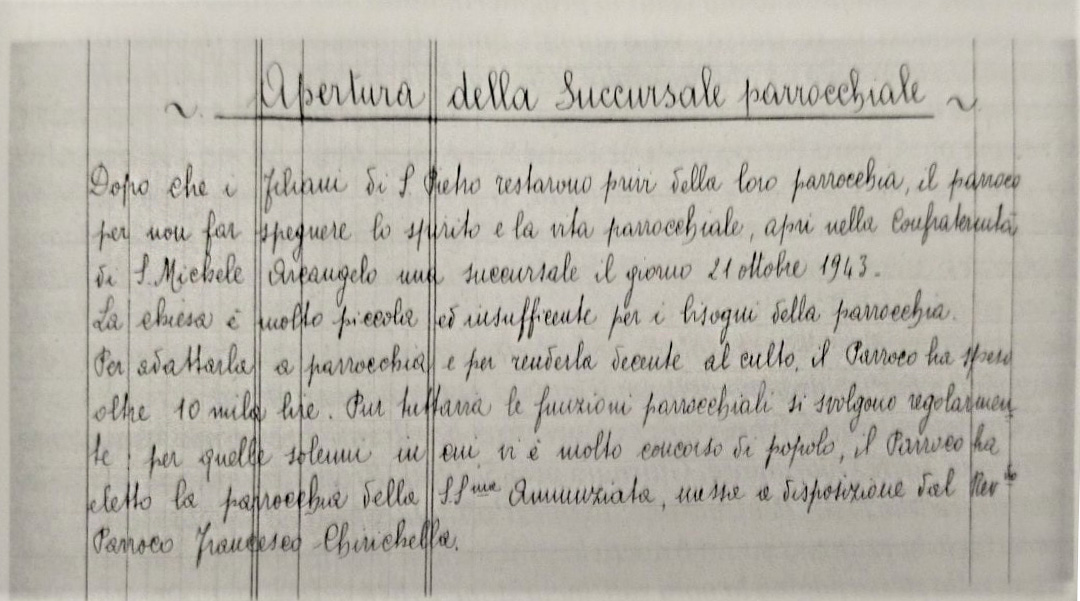 ~. Apertura della Succursale parrocchiale ~
Dopo che i filiani di S. Pietro restarono privi della loro parrocchia, il parroco
per non far spegnere lo spirito e la vita parrocchiale, aprì nella Confraternita
di S. Michele Arcangelo una succursale il giorno 21 ottobre 1943.
La chiesa è molto piccola ed insufficente per i bisogni della parrocchia.
Per adattarla a parrocchia e per renderla decente al culto, il Parroco ha speso
oltre 10 mila lire. Pur tuttavia le funzioni parrocchiali si svolgono regolarmen
te; per quelle solenni in cui vi è molto concorso di popolo, il Parroco ha
eletto la parrocchia della SS.ma Annunziata, messa a disposizione dal Rev.do
Parroco Francesco Chirichella.